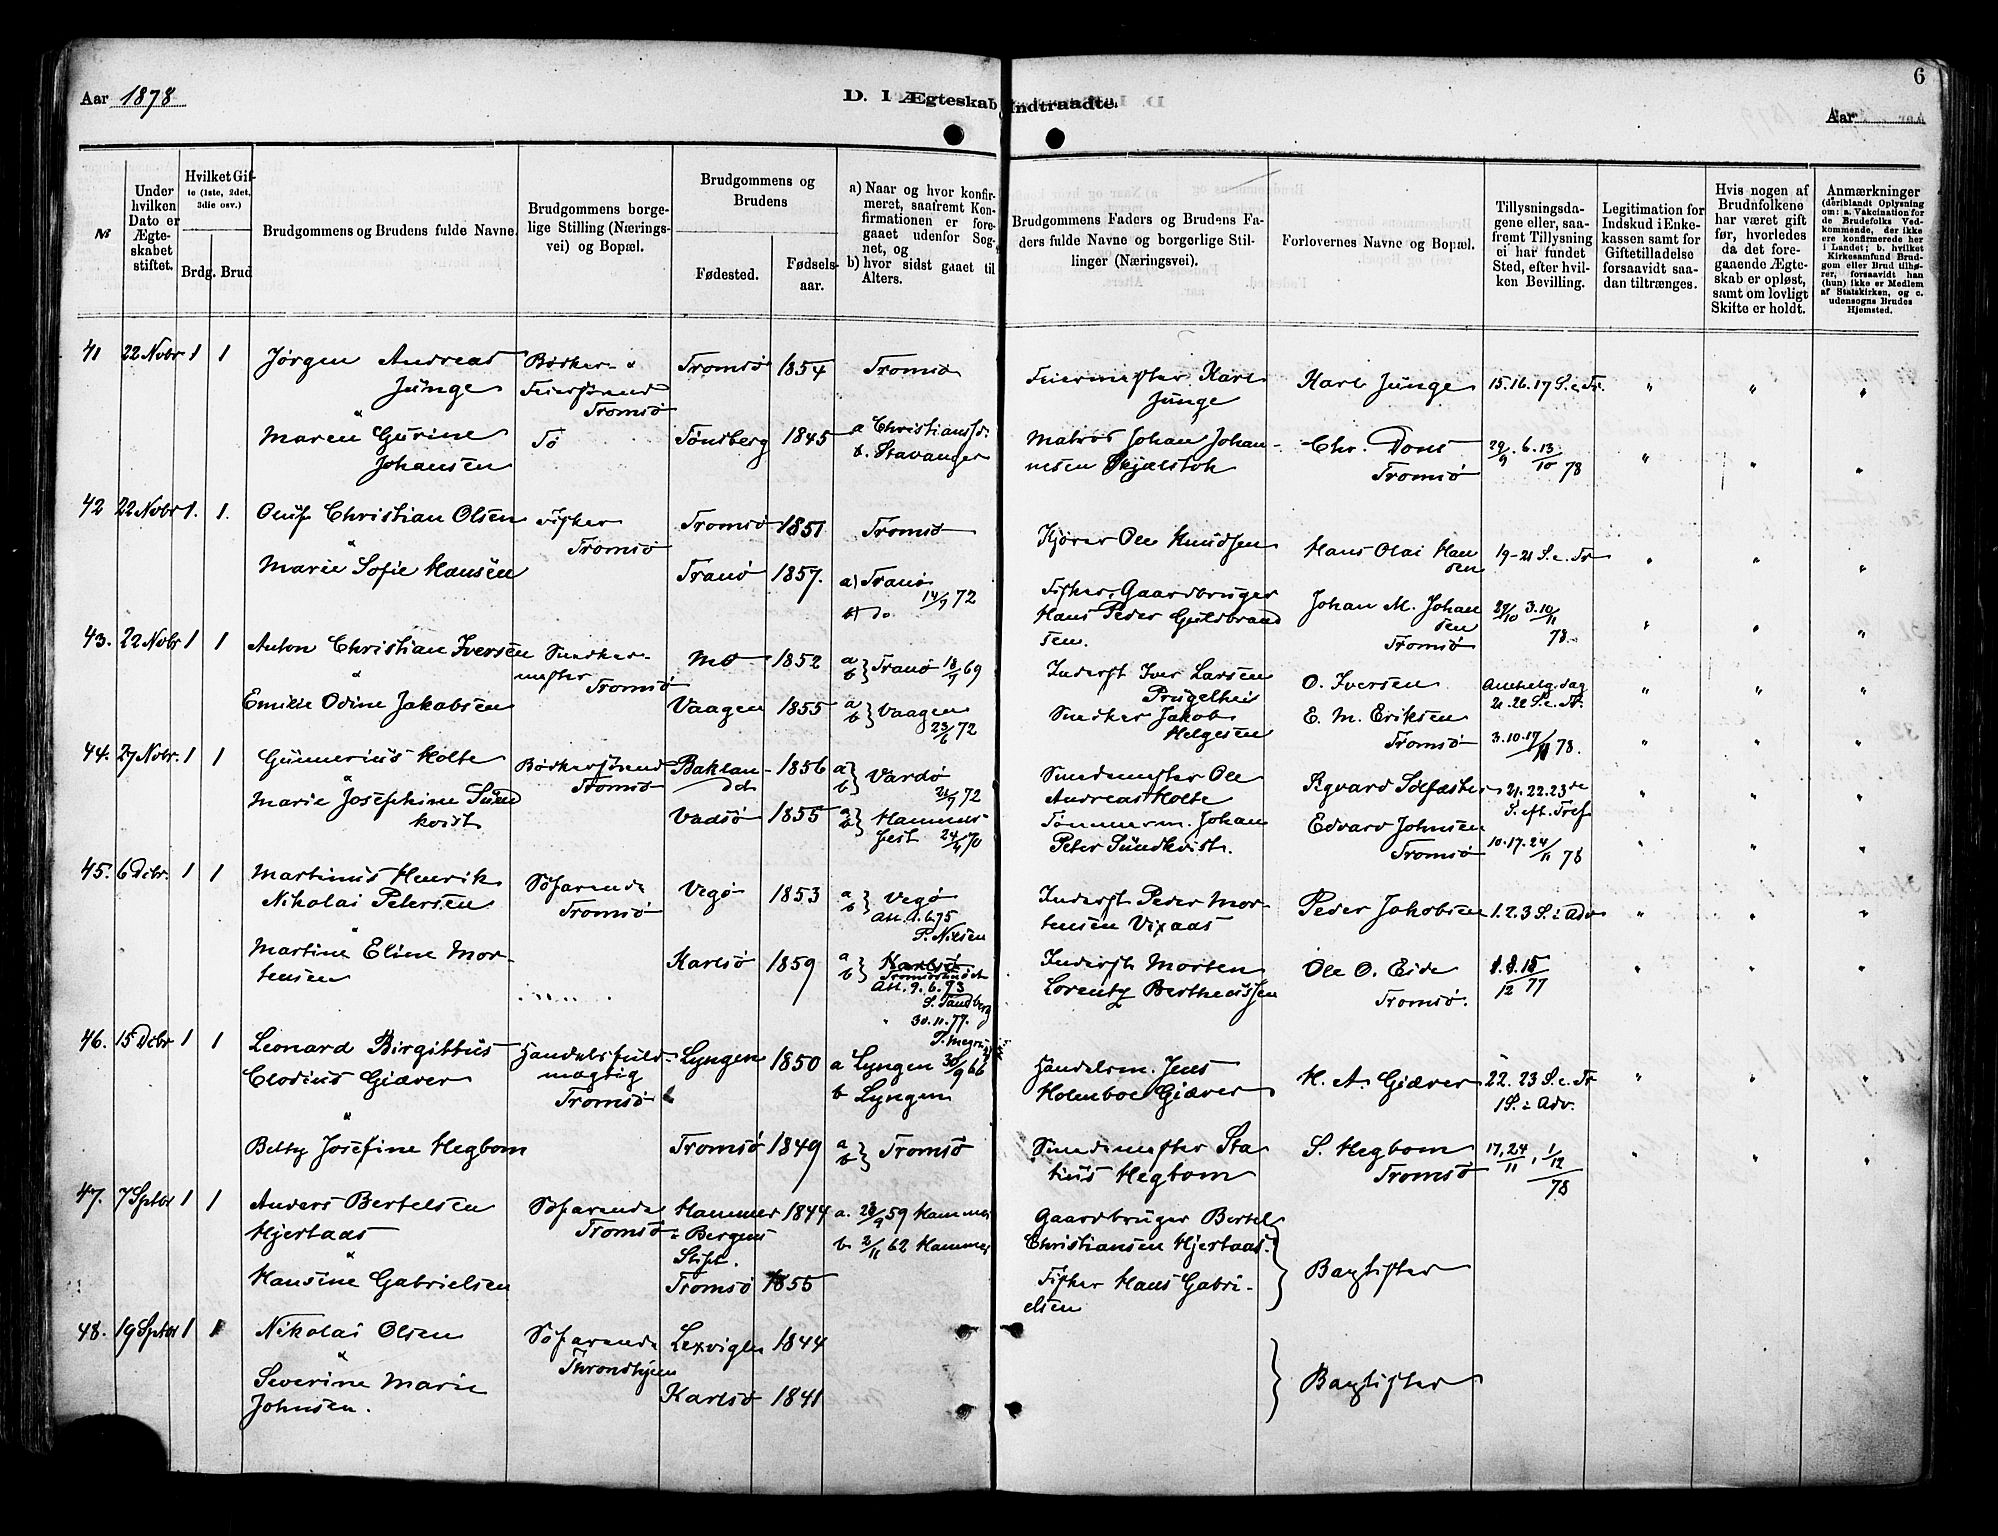 Aar 1878
D. I Ægteskab Indtraadte.
6
Aar
№
Under hvilken Dato er Ægteskabet stiftet.
Hvilket Gifte (1ste, 2det, 3die osv.)
Brdg. Brud
Brudgommens og Brudens fulde Navne.
Brudgommens borgelige Stilling (Næringsvei) og Bopæl.
Brudgommens og Brudens
Fødested.
Fødselsaar.
a) Naar og hvor konfirmeret, saafremt Konfirmationen er foregaaet udenfor Sognet, og
b) hvor sidst gaaet til Alters.
Brudgommens Faders og Brudens Faders fulde Navne og borgerlige Stillinger (Næringsvei).
Forlovernes Navne og Bopæl.
Tillysningsdagene eller, saafremt Tillysning ei har fundet Sted, efter hvilken Bevilling.
Legitimation for Indskud i Enkekassen samt for Giftetilladelse forsaavidt saadan tiltrænges.
Hvis nogen af Brudnfolkene har været gift før, hvorledes da det foregaaende Ægteskab er opløst, samt om lovligt Skifte er holdt.
Anmærkninger (deriblandt Oplysning om: a. Vakcination for de Brudefolks Vedkommende, der ikke ere konfirmerede her i Landet; b. hvilket Kirkesamfund Brudgom eller Brud tilhører, forsaavidt han (hun) ikke er Medlem af Statskirken, og c. udensogns Brudes Hjemsted.
41 22 Nobr 1 1 Jørgen Andreas Tromsö 1854 Tromsö
Junge
Tromsö
Maren Gurine Do Tönsberg 1845 a Christianssd.
Johansen b. Stavanger
Feiermester Karl Karl Junge 15. 16. 17 S. e. Tr.
Junge
Matros Johan Johan- Chr. Dons 29/9. 6. 13/10 78
Tromsö
42 22 Nobr 1. 1. Oluf Christian Olsen Fisker Tromsö 1851 Tromsö
Tromsö
Marie Sofie Hansen Tranö 1857. a) Tranö
14/7 72
b) Do
Kjører Ole Knudsen Hans Olai Han 19-21 S. e. Tr
sen
Fisker, Gaardbruger Johan M. Johan 27/10 3. 10/11
Hans Peder Guldbrand sen 78.
sen. Tromsö
43. 22 Nobr 1 1 Anton Christian Iversen Snedker- Mo 1852 a b } Tranö 18/7 69
mester Tromsö
Emilie Odine Jakobsen Vaagen 1855 a b } Vaagen
23/6 72
Inderst Iver Larsen O. Iversen Allehelg. dag
21. 22 S. e. Tr.
Snedker Jakob E. M. Eriksen
Helgesen Tromsö 3. 10. 17/11 78.
44. 27 Nobr. 1 1 Gunnerius Holte Bødkersvend Baklan- 1856 a b } Vardö
Tromsö det 21/7 72
Marie Josephine Sund
kvist Vadsö 1855 a b } Hammer-
fest 24/4 70
Ole
Andreas Holte 21. 22. 23de
S. eft. Tref
Tømmerm. Johan Edvard Johnsen
Peter Sundkvist. Tromsö 10. 17. 24/11 78
45. 6 Dcbr. 1 1 Martinus Henrik Söfarende Vegö 1853 a b } Vegö
Nikolai Petersen Tromsö
P. Nilsen
Martine Eline Mor- Karlsö 1859 a b } Karlsö
tensen Tromsösundet
Att. 9. 6. 93
S. Sandberg
30. 11. 77.
Inderst Peder Mor- Peder Jakobsen 1. 2. 3 S. i Adv
tensen Vixaas
Inderst Morten Ole O. Eide 1. 8. 15/12 77
Lorentz Bertheussen Tromsö.
46. 15 Dcbr 1 1 Leonard Birgittus Handelsfuld- Lyngen 1850 a Lyngen 30/9 66
Clodius Giæver mægtig b Lyngen
Tromsö
Betty Josefine Hegbom Tromsö 1849 a b } Tromsö
Handelsm. Jens H. A. Giæver 22. 23 S. e. Tr
Holmboe Giæver 1 S. i Adv.
Sta S. Hegbom 17. 24/11, 1/12 78
tius Hegbom Tromsö
47. 7 Sptbr 1 1 Anders Bertelsen Söfarende Hammer 1844 a. 28/9 59 Hammer
Hjertaas Tromsö i Bergens b 2/11 62 Hammer
Stift.
Hansine Gabrielsen Tromsö 1855
Gaardbruger Bertel
Christiansen Hjertaas.
Fisker Hans Gabri- Baptister
elsen
48. 19 Sptbr 1 1 Nikolai Olsen Söfarende Lexvigen 1844
Throndhjem
Severine Marie Karlsö 1841 Baptister
Johnsen.